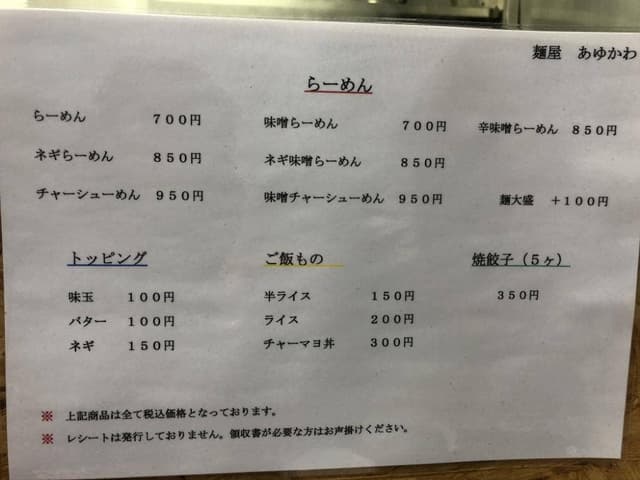 麺屋 あゆかわ
らーめん
らーめん 700円 味噌らーめん 700円 辛味噌らーめん 850円
ネギらーめん 850円 ネギ味噌らーめん 850円
チャーシューめん 950円 味噌チャーシューめん 950円 麺大盛 +100円
トッピング ご飯もの 焼餃子(5ヶ)
味玉 100円 半ライス 150円 350円
バター 100円 ライス 200円
ネギ 150円 チャーマヨ丼 300円
※ 上記商品は全て税込価格となっております。
※ レシートは発行しておりません。領収書が必要な方はお声掛けください。